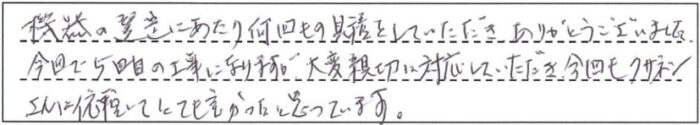 機器の選定にあたり何回もの見積をしていただきありがとうございました。
今回で5回目の工事になりますが、大変親切に対応していただき今回もクサネン
さんに依頼してとても良かったと思っています。